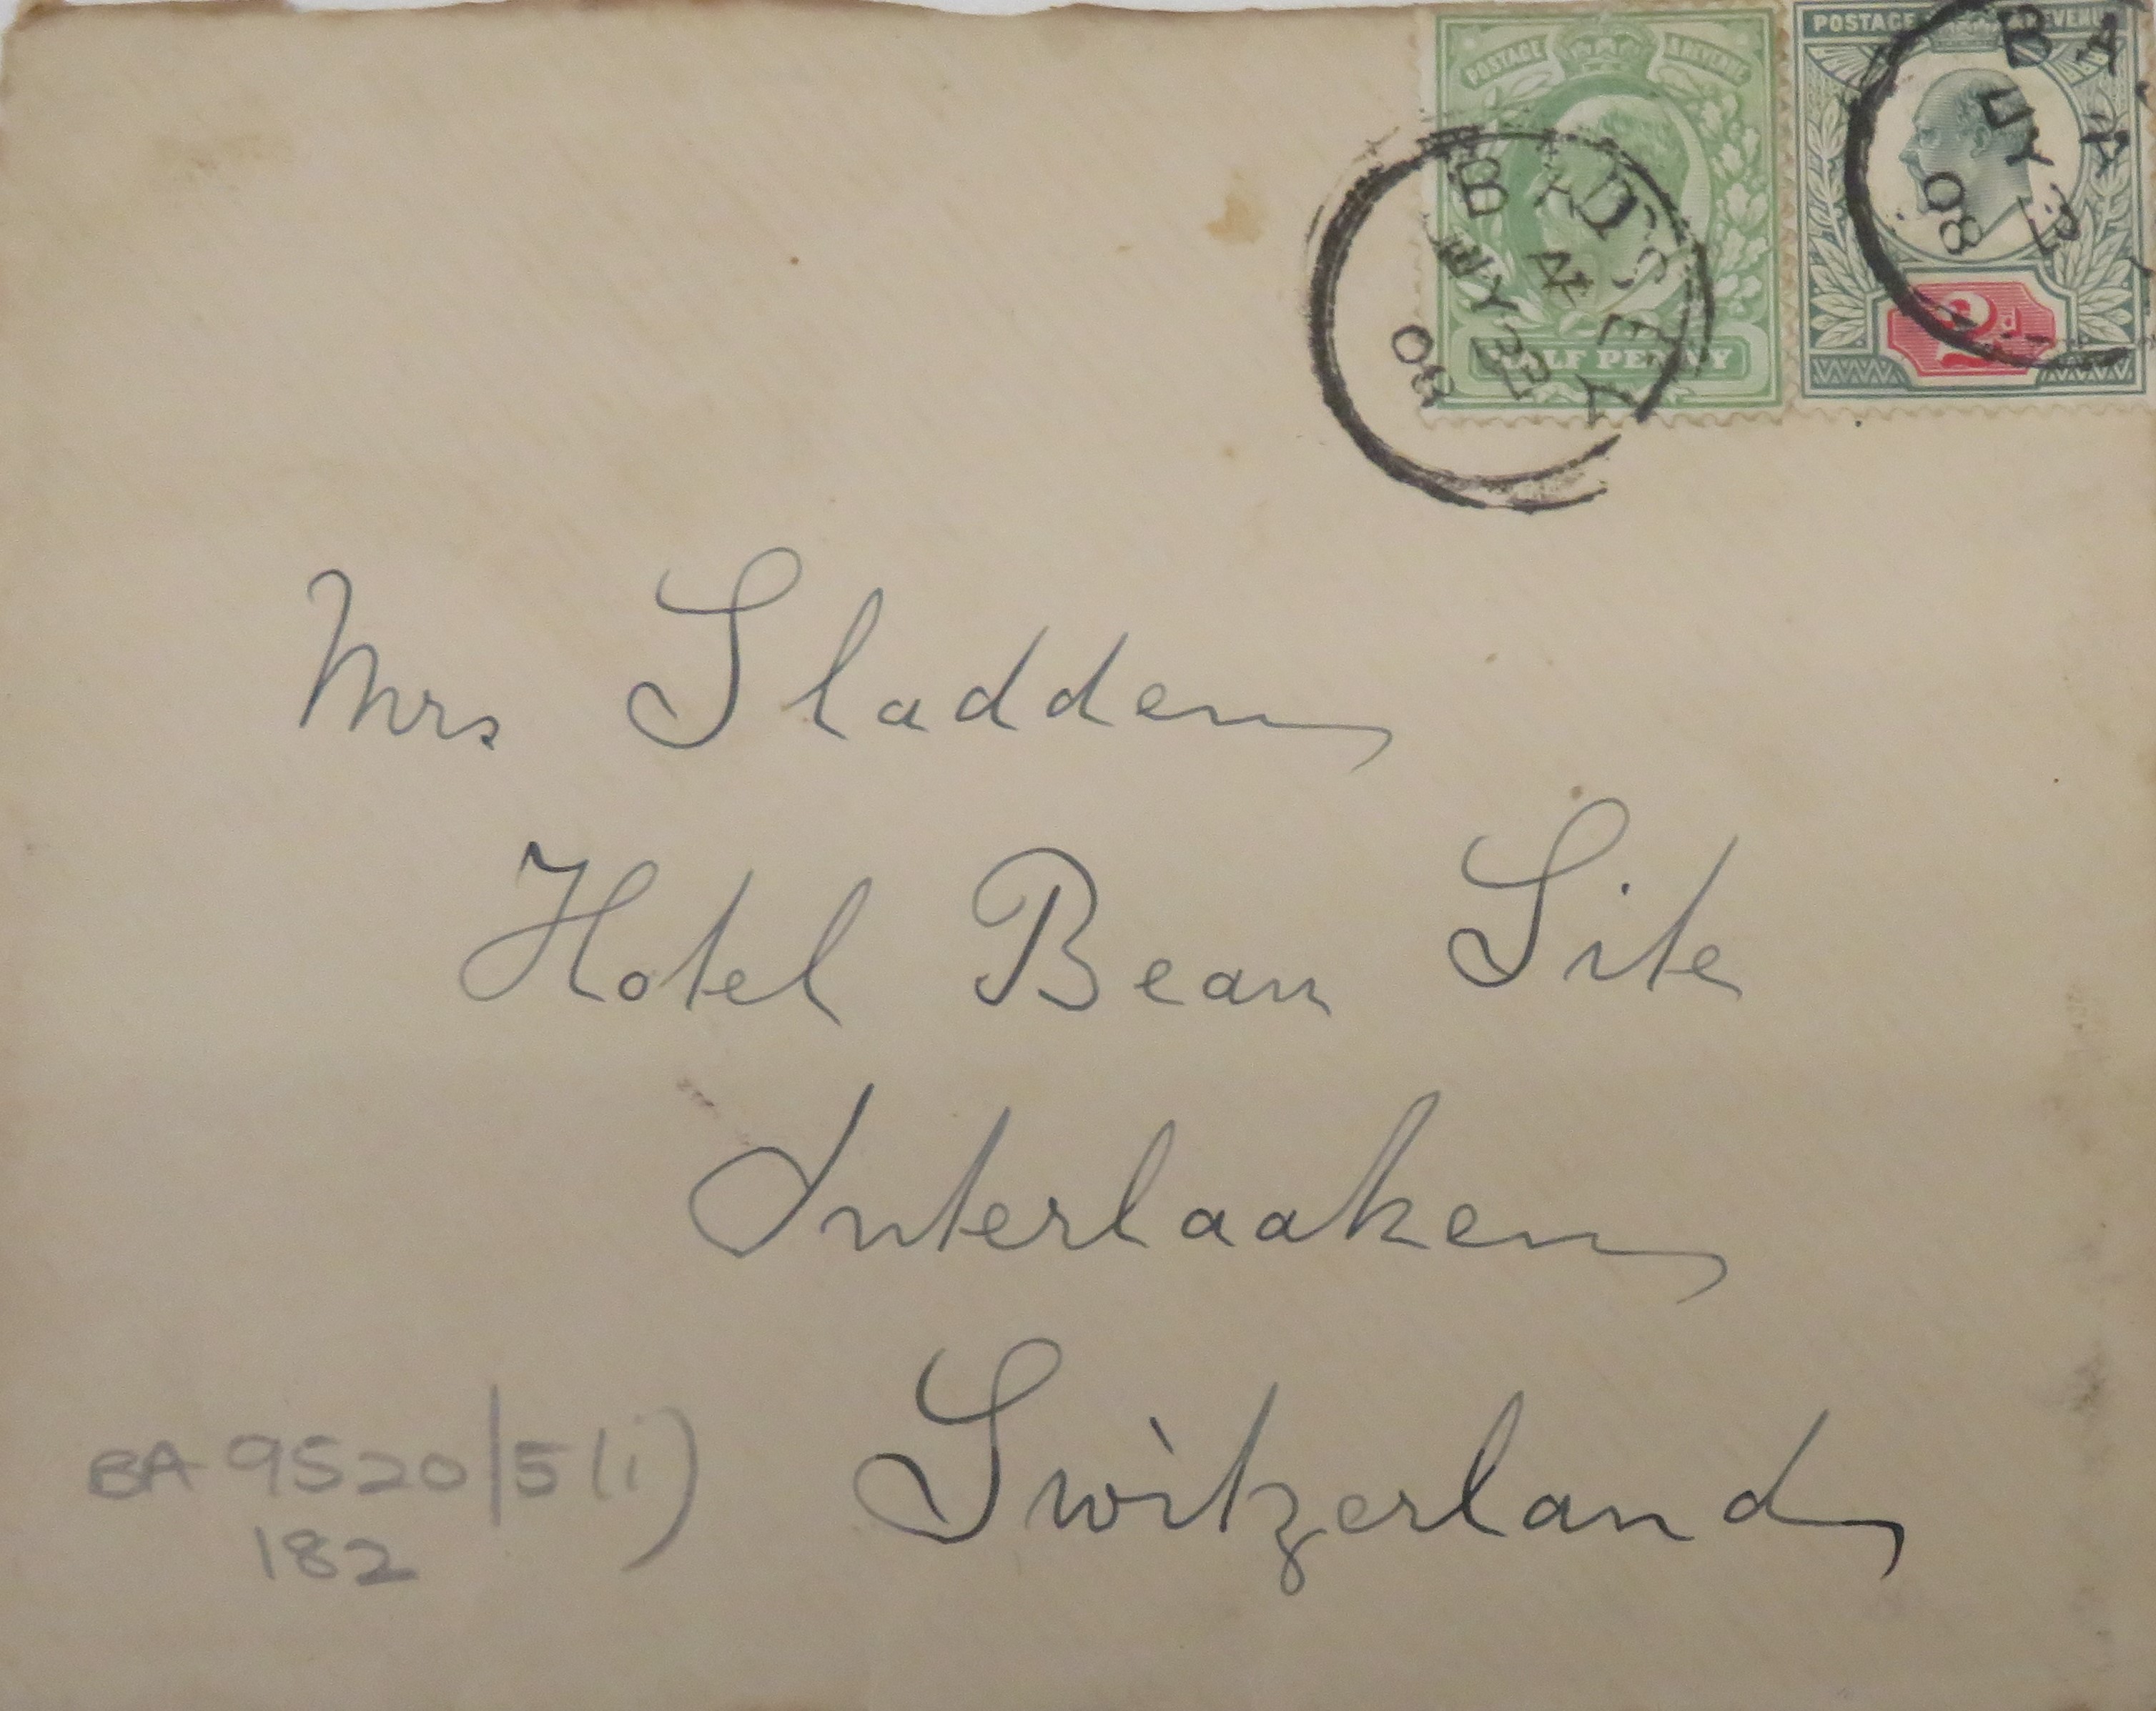 POSTAGE & REVENUE
POSTAGE & REVENUE
BADSEY
A
08
HALF PENNY
BA
A
08
2D
Mrs Sladden
Hotel Beau Site
Interlaaken
Switzerland
BA 9520/5(i)
182